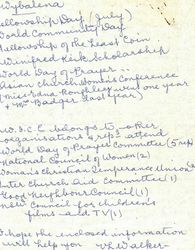 Wybalena
Fellowship Day (July)
World Community Day
Fellowship of the Least Coin
Winifred Kiek Scholarship
World Day of Prayer
Asian Church Women's Conference
went one year
& Mrs Badger last year)
belongs to other
organisations & reps attend
World Day of Prayer Committee (5 reps)
National Council of Women (2)
Woman's Christian Temperance Union
Inter Church Aid Committee (1)
Good Neighbour Council (1)
NSW Council for children's
films and TV (1)
I hope the enclosed information
will help you